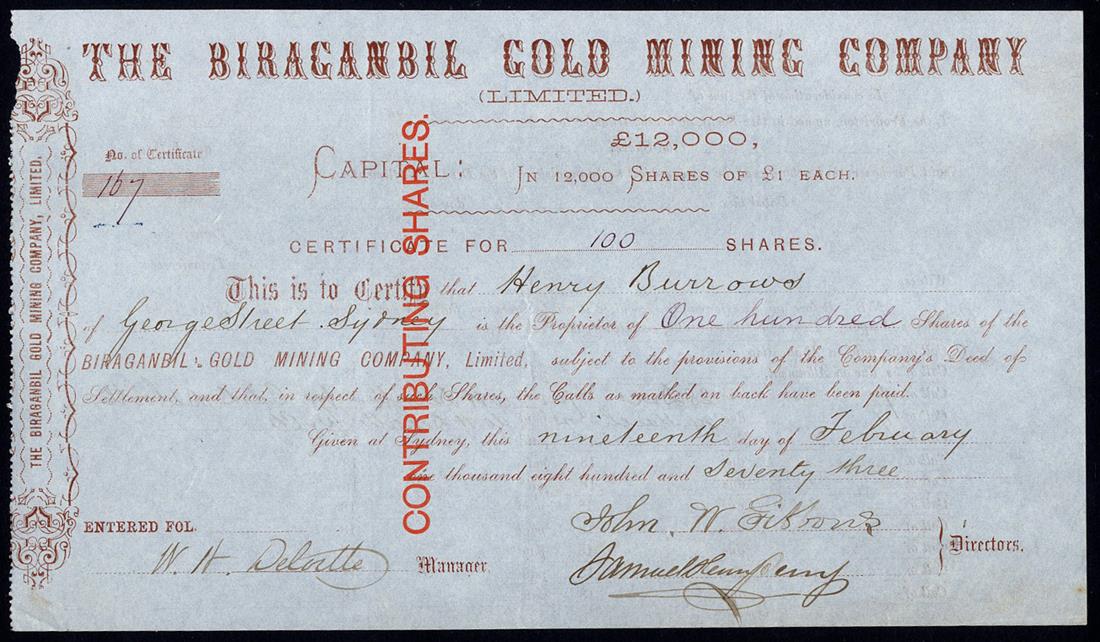 THE BIRAGANBIL GOLD MINING COMPANY
(LIMITED.)
No. of Certificate
167
CAPITAL: £12,000,
IN 12,000 SHARES OF £1 EACH.
CERTIFICATE FOR 100 SHARES.
This is to Certify that Henry Burrows
of George Street Sydney is the Proprietor of One hundred Shares of the
BIRAGANBIL GOLD MINING COMPANY, Limited, subject to the provisions of the Company's Deed of
Settlement, and that, in respect of such Shares, the Calls as marked on back have been paid.
Given at Sydney, this nineteenth day of February
One thousand eight hundred and Seventy three
ENTERED FOL.
John W. Gibbons
W. H. Deloitte Manager.
Samuel Henry
Directors.
CONTRIBUTING SHARES.
THE BIRAGANBIL GOLD MINING COMPANY, LIMITED.